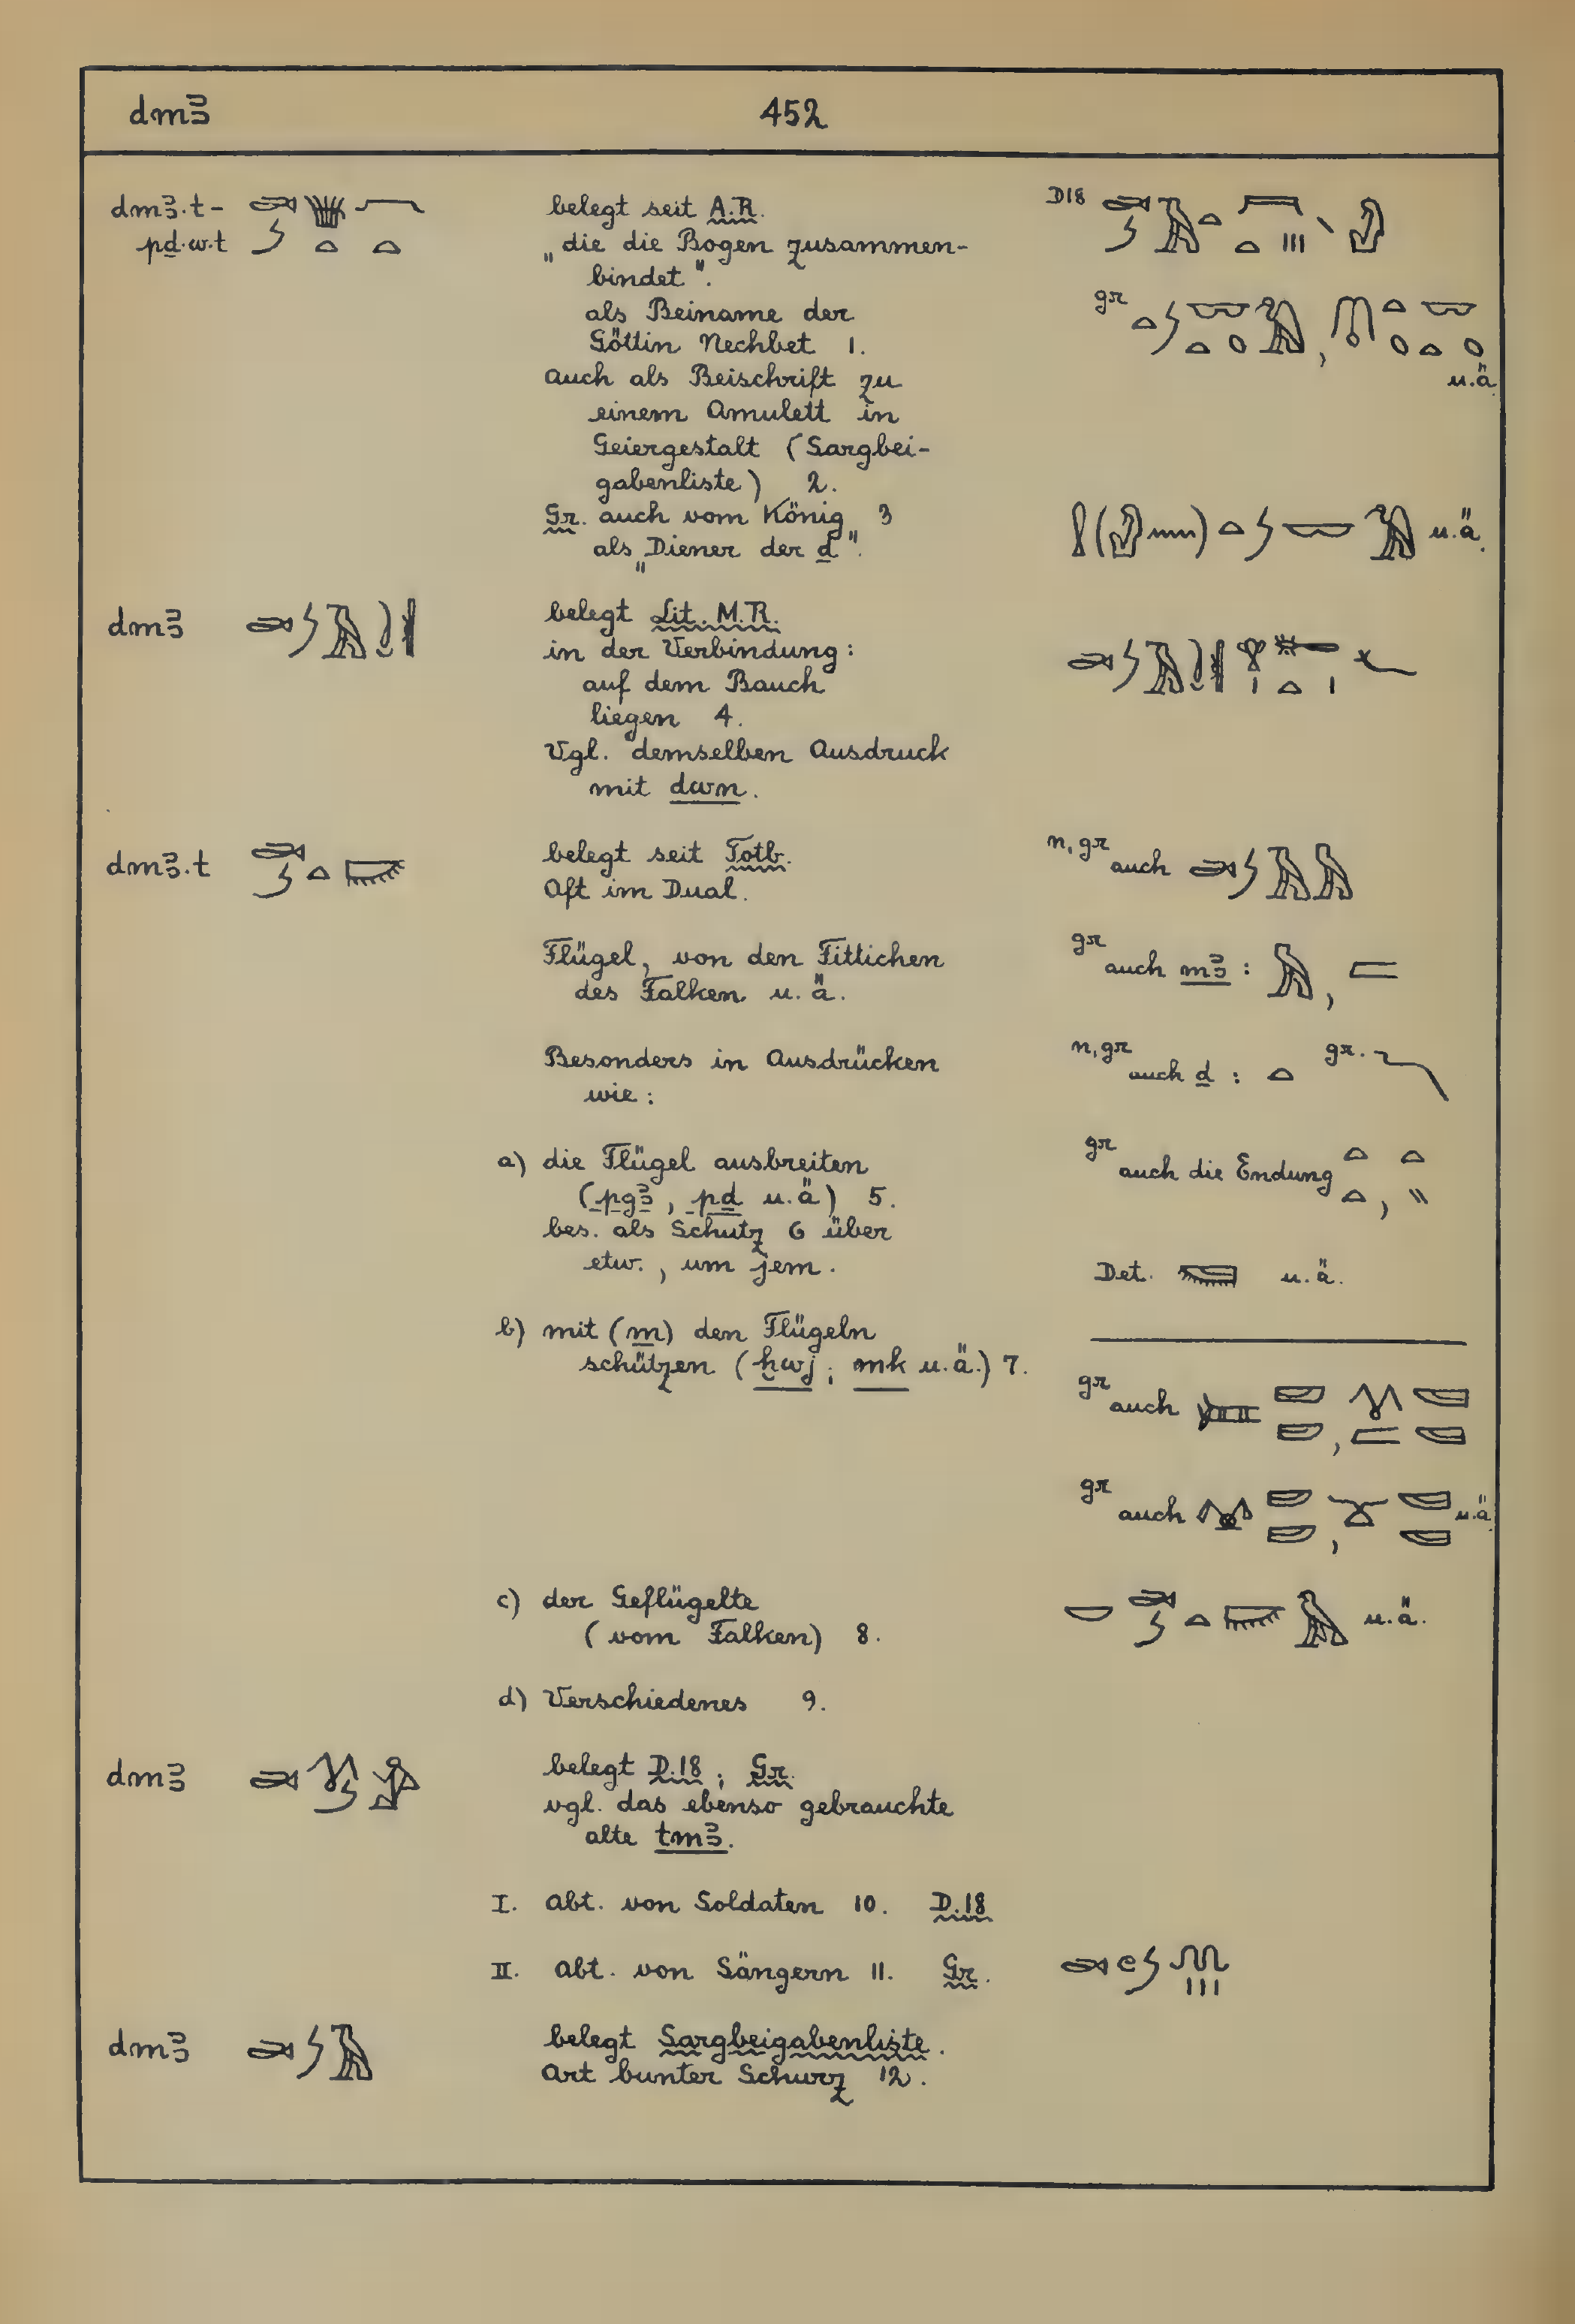 dmꜣ 452
dmꜣ.t-
pḏ.w.t
belegt seit A.R.
„die die Bogen zusammen-
bindet".
als Beiname der
Göttin Nechbet 1.
auch als Beischrift zu
einem Amulett in
Geiergestalt (Sargbei-
gabenliste) 2.
Gr. auch vom König 3
als „Diener der d".
D18
gr
u.ä.
u.ä.
dmꜣ
belegt Lit. M.R.
in der Verbindung:
auf dem Bauch
liegen 4.
Vgl. demselben Ausdruck
mit dwn.
dmꜣ.t
belegt seit Totb.
Oft im Dual.
Flügel, von den Fittichen
des Falken u.ä.
Besonders in Ausdrücken
wie:
a) die Flügel ausbreiten
(pgꜣ, pḏ u.ä) 5.
bes. als Schutz 6 über
etw., um jem.
b) mit (m) den Flügeln
schützen (ḫwj; mk u.ä.) 7.
n, gr auch
gr auch mꜣ: ,
n, gr auch d: gr.
gr auch die Endung ,
Det. u.ä.
gr auch ,
gr auch , u.ä.
c) der Geflügelte
(vom Falken) 8.
u.ä.
d) Verschiedenes 9.
dmꜣ
belegt D.18; Gr.
vgl. das ebenso gebrauchte
alte tmꜣ.
I. Abt. von Soldaten 10. D.18
II. Abt. von Sängern 11. Gr.
dmꜣ
belegt Sargbeigabenliste.
Art bunter Schurz 12.